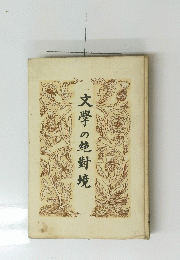 文學の絶對境